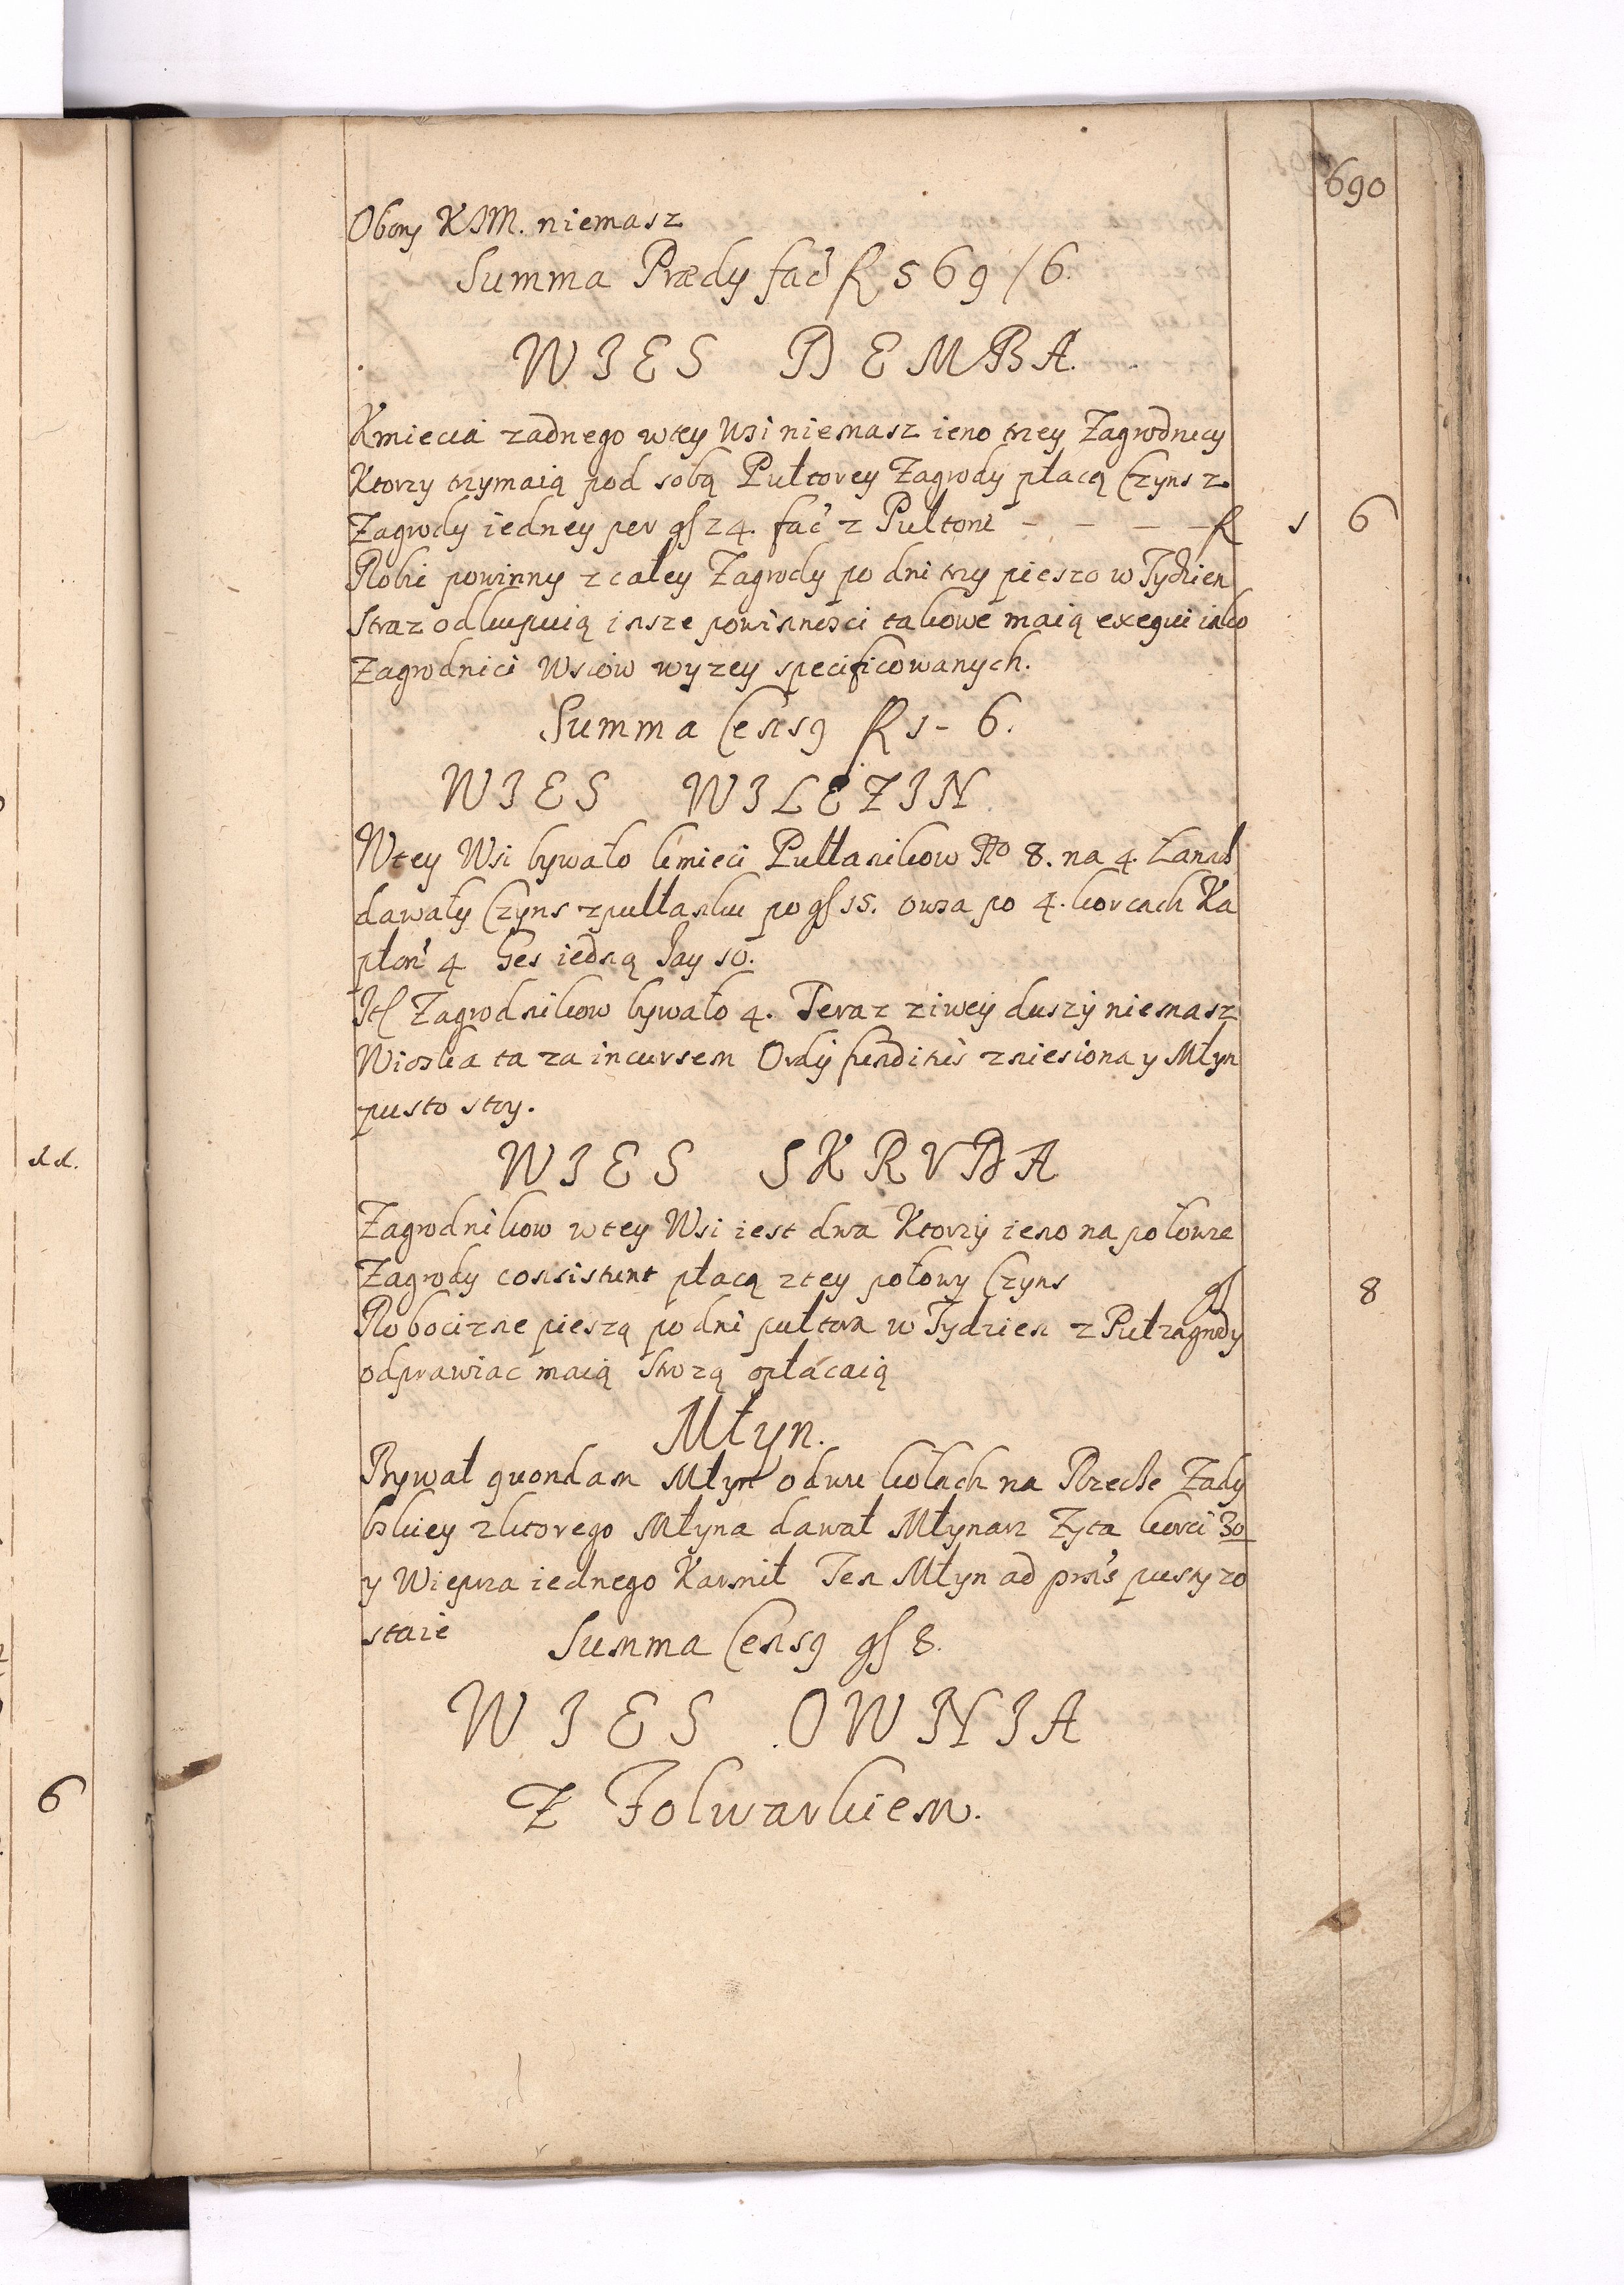 690
Obory KJM. niemasz
Summa Prædy fac̃ f 569/6.
WIES DEMBA.
Kmiecia zadnego wtey Wsi niemasz ieno trzey Zagrodnicy
Ktorzy trzymaią pod sobą Pułtorey Zagrody płacą Czyns z
Zagrody iedney per gſ 24. fac̃ z Pułtorni - - - - f 1 6
Robic powinny z całey Zagrody po dni trzy pieszo w Tydzien
Straz odkupuią insze powinnosci takowe maią exequi iako
Zagrodnici Wsiow wyzey specificowanych.
Summa Censꝯ f 1 - 6.
WIES WILEZIN
Wtey Wsi bywało kmieci Pułłanikow No 8. na 4. Łanach
dawały Czyns zpułłanku po gſ 15. owsa po 4. korcach Ka
płon 4 Ges iedną Jay 10.
Itſ Zagrodnikow bywało 4. Teraz ziwey duszy niemasz
Wioska ta za incursem Ordy funditus zniesiona y Młyn
pusto stoy.
WIES SKRVDA
Zagrodnikow wtey Wsi iest dwa Ktorzy ieno na połowze
Zagrody consistunt płacą ztey połowy Czyns gſ 8
Robocizne pieszą po dni pułtora w Tydzien z Pułzagrody
odprawiac maią Strozą opłacaią
Młyn.
Bywał quondam Młyn odwu kołach na Rzeche Zady
bskiey zktorego Młyna dawał Młynarz Zyta korci 30
y Wieprza iednego Karmił Ten Młyn ad prn̄s pusty zo
staie
Summa Censꝯ gſ 8.
WIES OWNIA
Z Folwarkiem.
dd.
6